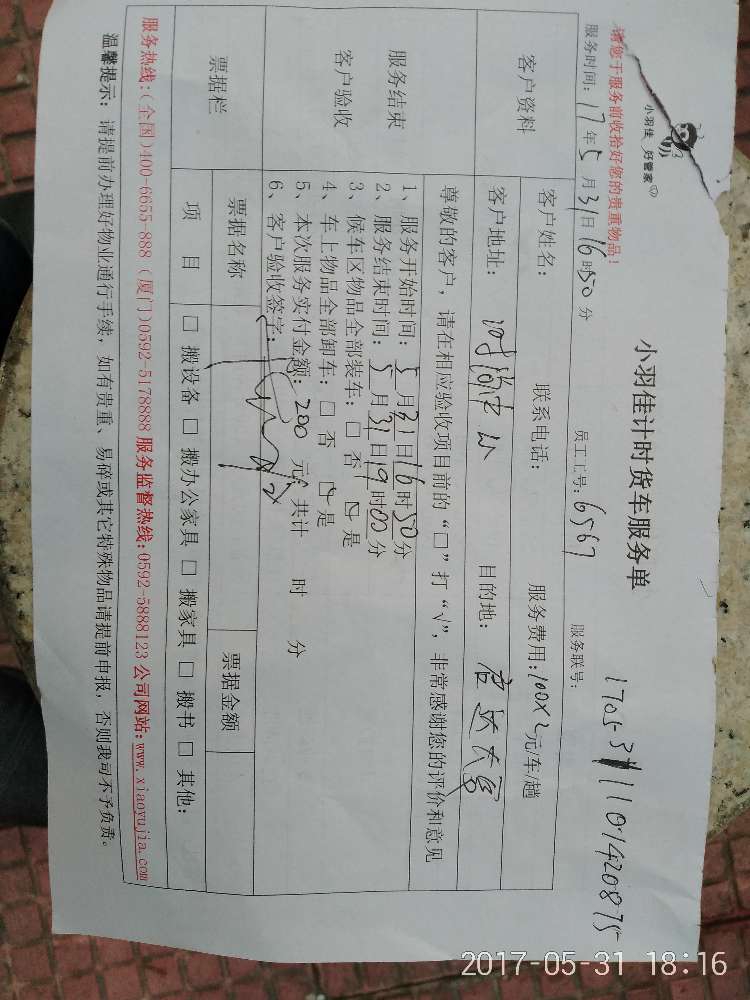 请您于服务前收拾好您的贵重物品！
小羽佳 好管家
小羽佳计时货车服务单
1705311101420875
服务时间：17年5月31日16时50分 员工工号：6567 服务联号：
客户资料
客户姓名： 联系电话： 服务费用：100X2元/车/趟
客户地址： 目的地：
服务结束
客户验收
尊敬的客户，请在相应验收项目前的“□”打“√”，非常感谢您的评价和意见
1、服务开始时间：5月31日16时50分
2、服务结束时间：5月31日19时00分
3、候车区物品全部装车：□ 否 □ 是
4、车上物品全部卸车：□ 否 □ 是
5、本次服务实付金额：200元；共计 时 分
6、客户验收签字：
票据栏
票据名称 票据金额
项 目 □ 搬设备 □ 搬办公家具 □ 搬家具 □ 搬书 □ 其他：
服务热线：（全国）400-6655-888（厦门）0592-5178888 服务监督热线：0592-5888123 公司网站：www.xiaoyujia.com
温馨提示：请提前办理好物业通行手续，如有贵重、易碎或其它特殊物品请提前申报，否则我司不予负责。
2017-05-31 18:16